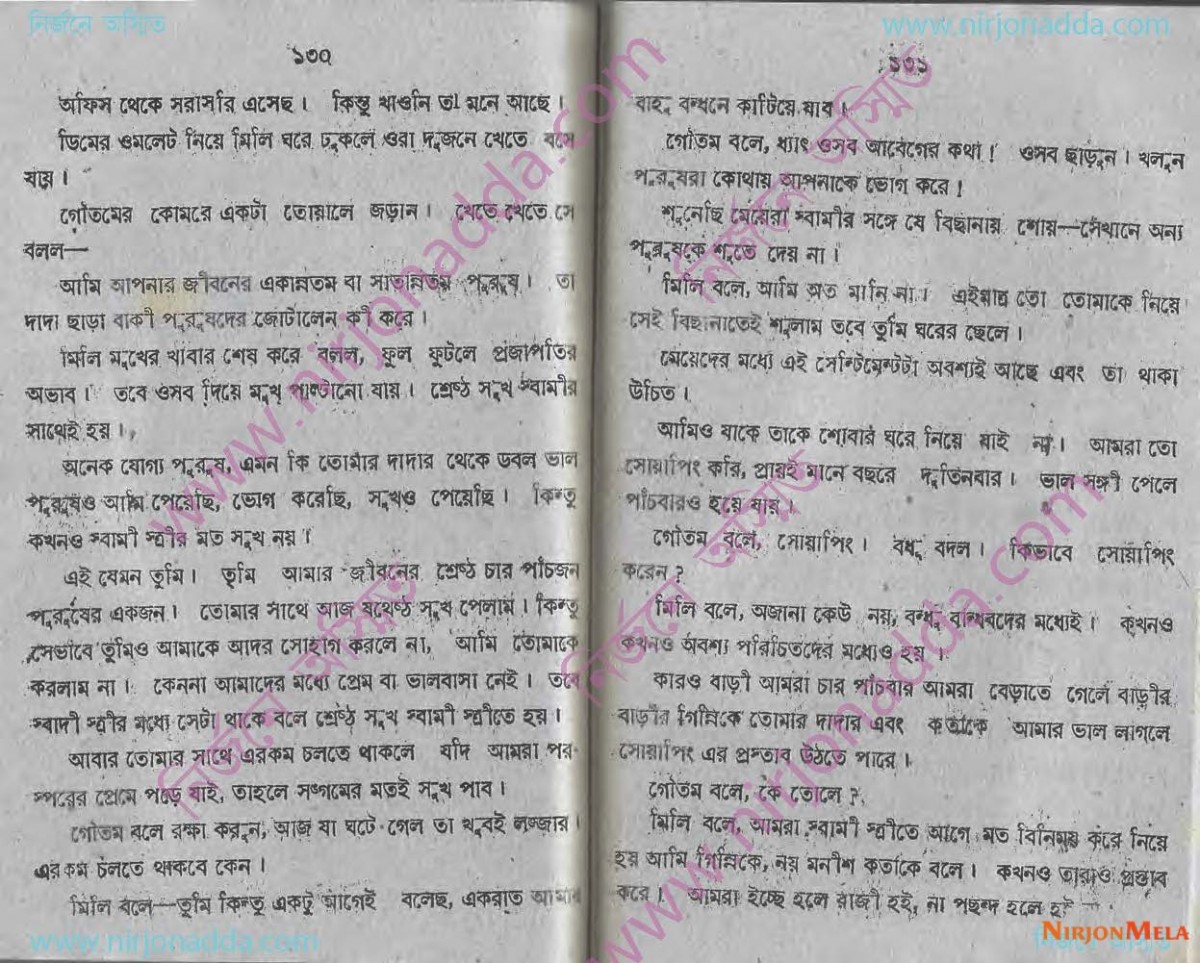 নির্জনে অস্মিত
www.nirjonadda.com
১৩০
অফিস থেকে সরাসরি এসেছ। কিন্তু খাওনি তা মনে আছে।
ডিমের ওমলেট নিয়ে মিলি ঘরে ঢুকলে ওরা দুজনে খেতে বসে
যায়।
গৌতমের কোমরে একটা তোয়ালে জড়ান। খেতে খেতে সে
বলল—
আমি আপনার জীবনের একান্নতম বা সাতান্নতম পুরুষ। তা
দাদা ছাড়া বাকী পুরুষদের জোটালেন কী করে।
মিলি মুখের খাবার শেষ করে বলল, ফুল ফুটলে প্রজাপতির
অভাব। তবে ওসব দিয়ে মুখ পাল্টানো যায়। শ্রেষ্ঠ সুখ স্বামীর
সাথেই হয়।
অনেক যোগ্য পুরুষ, এমন কি তোমার দাদার থেকে ডবল ভাল
পুরুষও আমি পেয়েছি, ভোগ করেছি, সুখও পেয়েছি। কিন্তু
কখনও স্বামী স্ত্রীর মত সুখ নয়।
এই যেমন তুমি। তুমি আমার জীবনের শ্রেষ্ঠ চার পাঁচজন
পুরুষের একজন। তোমার সাথে আজ যথেষ্ঠ সুখ পেলাম। কিন্তু
সেভাবে তুমিও আমাকে আদর সোহাগ করলে না, আমি তোমাকে
করলাম না। কেননা আমাদের মধ্যে প্রেম বা ভালবাসা নেই। তবে
স্বাদী স্ত্রীর মধ্যে সেটা থাকে বলে শ্রেষ্ঠ সুখ স্বামী স্ত্রীতে হয়।
আবার তোমার সাথে এরকম চলতে থাকলে যদি আমরা পর-
স্পরের প্রেমে পড়ে যাই, তাহলে সঙ্গমের মতই সুখ পাব।
গৌতম বলে রক্ষা করুন, আজ যা ঘটে গেল তা খুবই লজ্জার।
এরকম চলতে থাকবে কেন।
মিলি বলে—তুমি কিন্তু একটু আগেই বলেছ, একরাত আমার
১৩১
বাহু বন্ধনে কাটিয়ে যাব।
গৌতম বলে, ধ্যাৎ ওসব আবেগের কথা! ওসব ছাড়ুন। বলুন
পুরুষরা কোথায় আপনাকে ভোগ করে!
শুনেছি মেয়েরা স্বামীর সঙ্গে যে বিছানায় শোয়—সেখানে অন্য
পুরুষকে শুতে দেয় না।
মিলি বলে, আমি অত মানি না। এইমাত্র তো তোমাকে নিয়ে
সেই বিছানাতেই শুলাম তবে তুমি ঘরের ছেলে।
মেয়েদের মধ্যে এই সেন্টিমেন্টটা অবশ্যই আছে এবং তা থাকা
উচিত।
আমিও যাকে তাকে শোবার ঘরে নিয়ে যাই না। আমরা তো
সোয়াপিং করি, প্রায়ই মানে বছরে দুতিনবার। ভাল সঙ্গী পেলে
পাঁচবারও হয়ে যায়।
গৌতম বলে, সোয়াপিং। বধু বদল। কিভাবে সোয়াপিং
করেন?
মিলি বলে, অজানা কেউ নয়, বন্ধু বান্ধবদের মধ্যেই। কখনও
কখনও অবশ্য পরিচিতদের মধ্যেও হয়।
কারও বাড়ী আমরা চার পাঁচবার আমরা বেড়াতে গেলে বাড়ীর
বাড়ীর গিন্নিকে তোমার দাদার এবং কর্তাকে আমার ভাল লাগলে
সোয়াপিং এর প্রস্তাব উঠতে পারে।
গৌতম বলে, কে তোলে?
মিলি বলে, আমরা স্বামী স্ত্রীতে আগে মত বিনিময় করে নিয়ে
হয় আমি গিন্নিকে, নয় মনীশ কর্তাকে বলে। কখনও তারাও প্রস্তাব
করে। আমরা ইচ্ছে হলে রাজী হই, না পছন্দ হলে
www.nirjonadda.com
NIRJONMELA